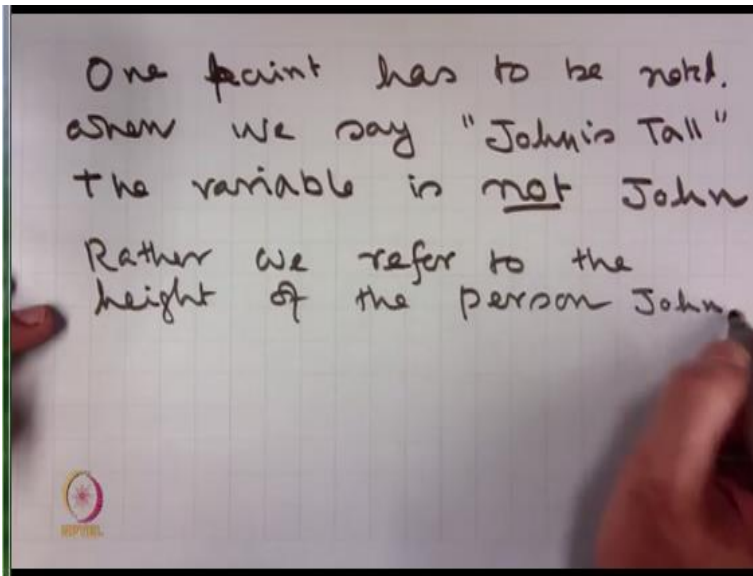 One point has to be noted.
When we say "John is Tall"
The variable is not John
Rather we refer to the
height of the person John.
NPTEL